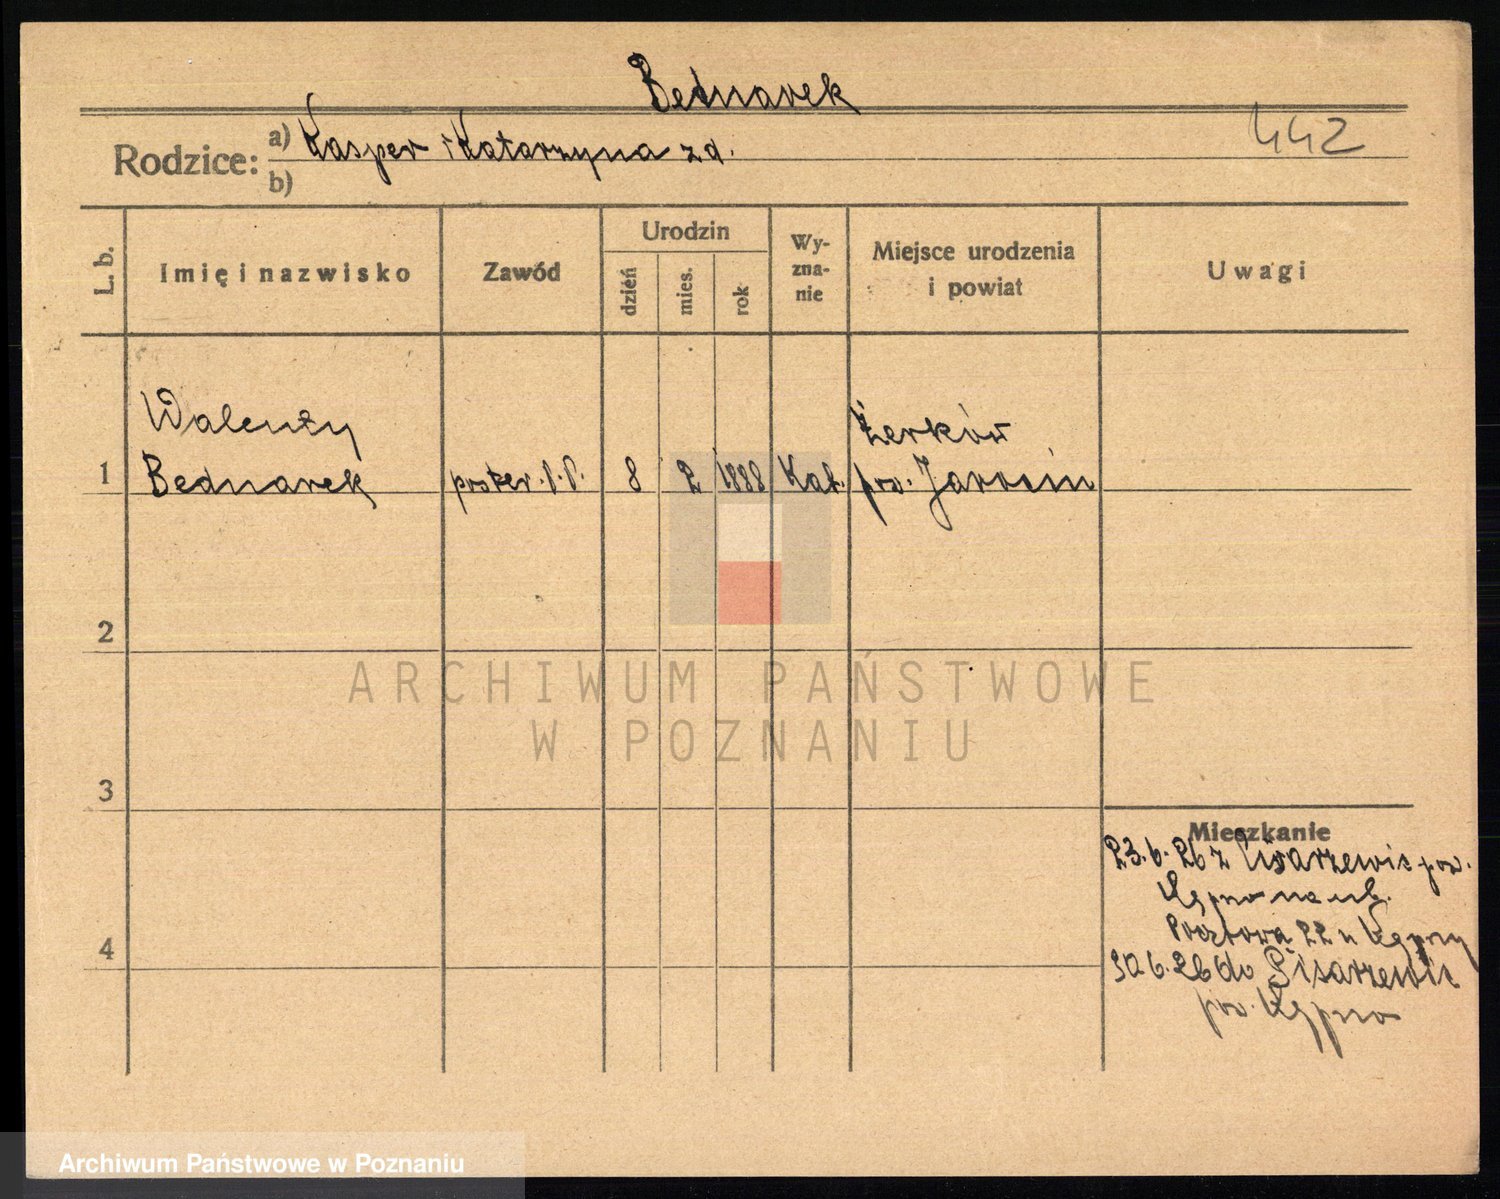 Bednarek
442
Rodzice: a) Kasper i Katarzyna zd.
b)
L. b.
Imię i nazwisko
Zawód
Urodzin
dzień
mies.
rok
Wy-
zna-
nie
Miejsce urodzenia
i powiat
Uwagi
Walenty
Żerków
1 Bednarek 8 2 1888 Kat. pow. Jarocin
2
3
4
Mieszkanie
23.6.26 z Pisarzewic pow.
Kępno na ul.
Pocztową 22 u Kępny
30.6.26 do Pisarzewic
pow. Kępno
ARCHIWUM PAŃSTWOWE
W POZNANIU
Archiwum Państwowe w Poznaniu